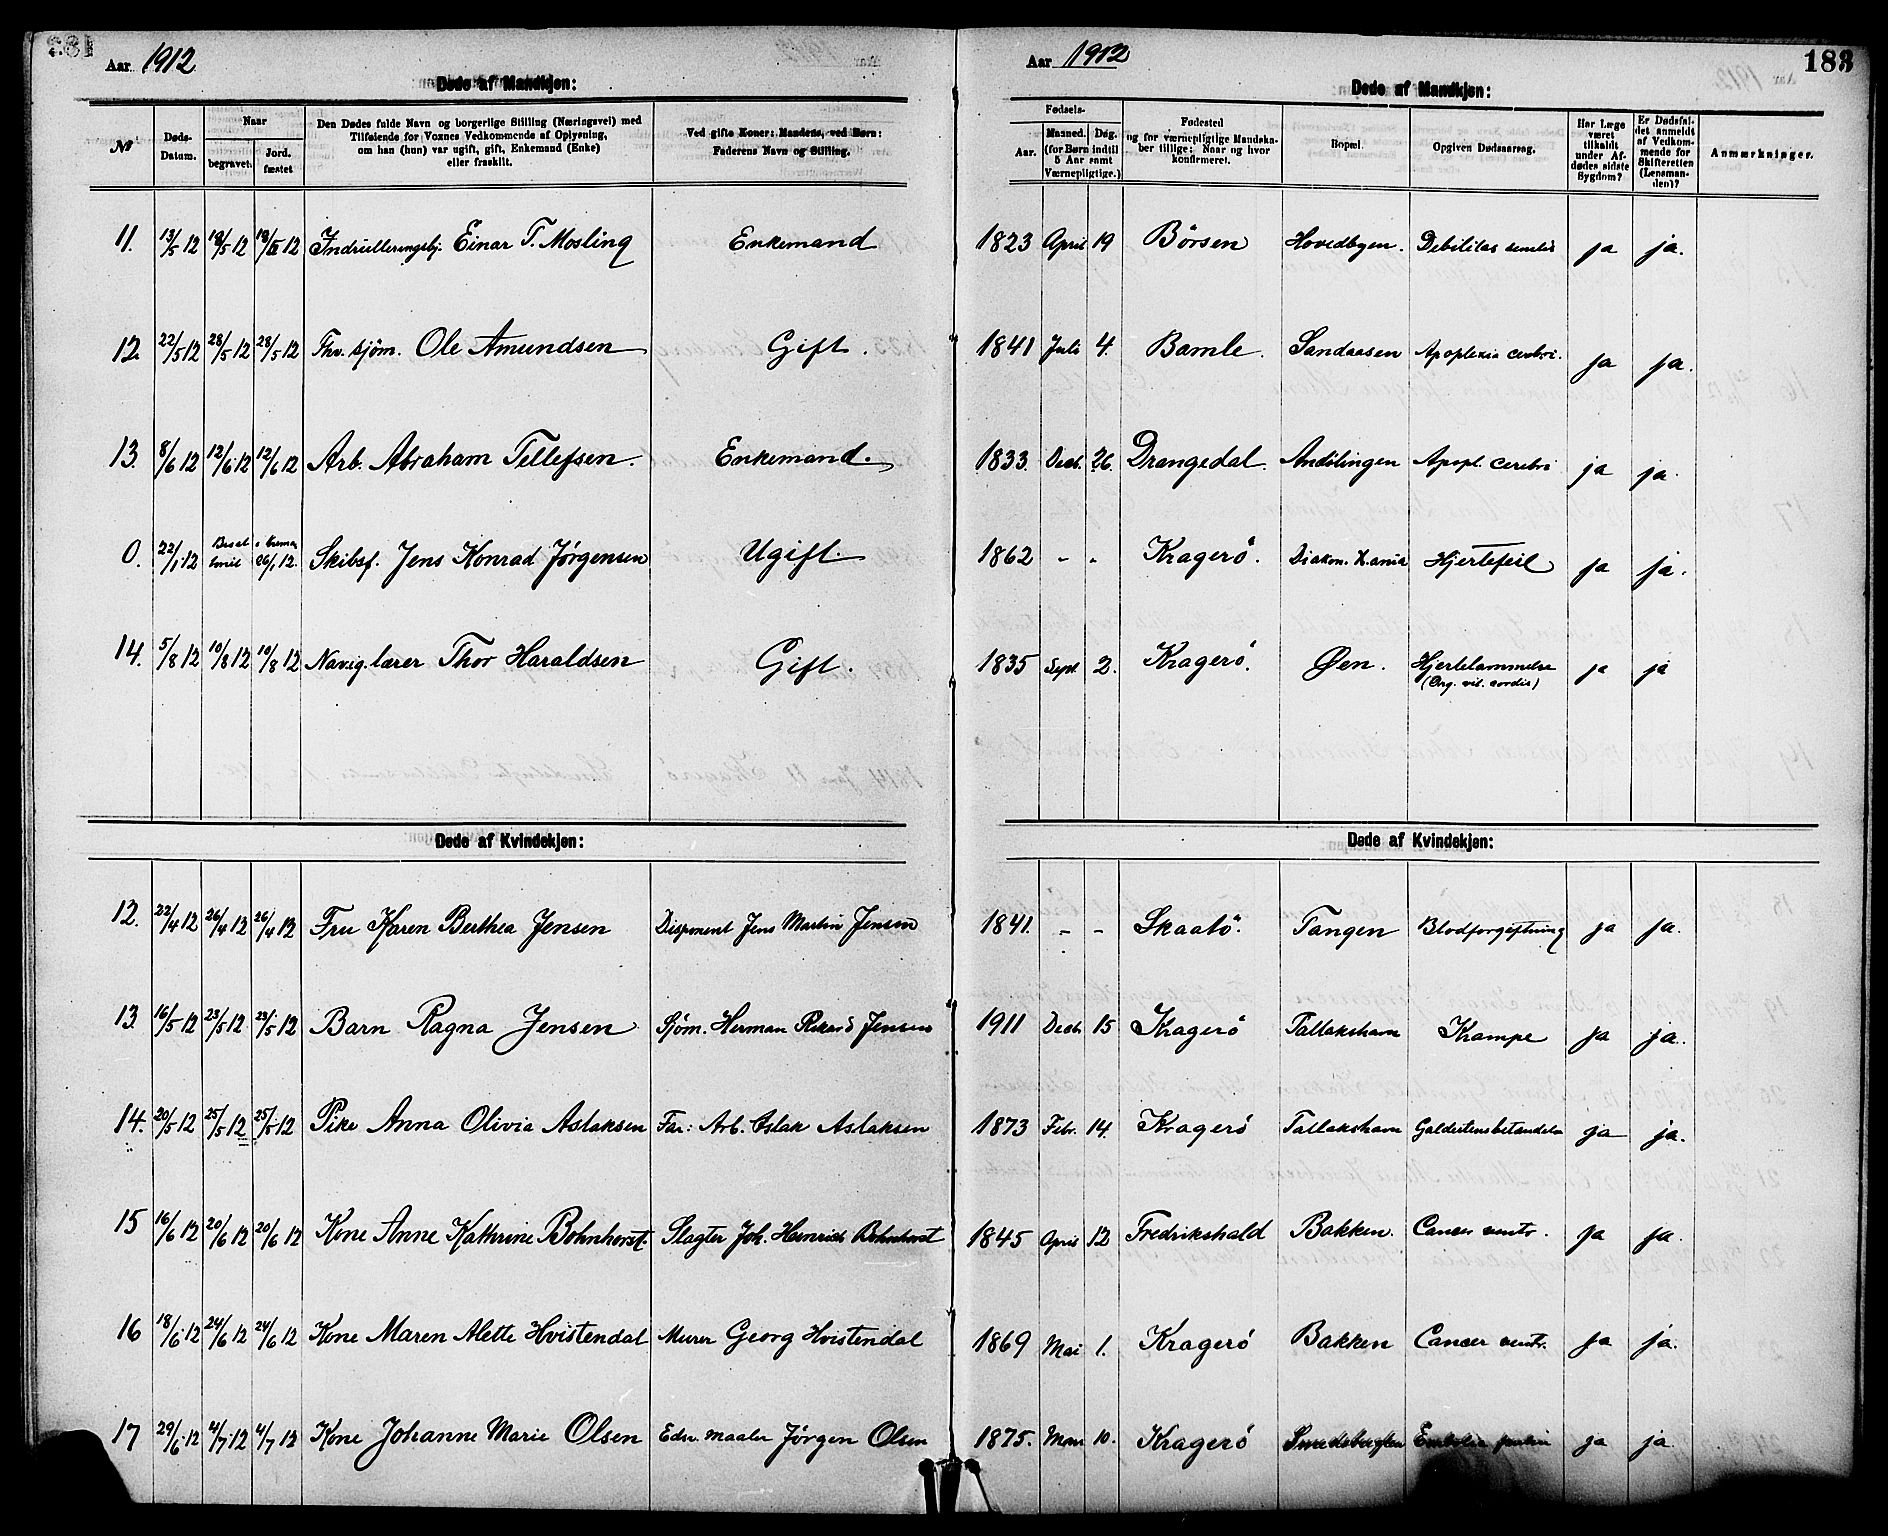 Aar 1912
Døde af Mandkjøn:
№
Døds-Datum.
Naar
begravet.
Jord.fæstet
Den Dødes fulde Navn og borgerlige Stilling (Næringsvei) med
Tilføiende for Voxnes Vedkommende af Oplysning,
om han (hun) var ugift, gift, Enkemand (Enke)
eller fraskilt.
Ved gifte Koner: Mandens, ved Børn:
Faderens Navn og Stilling.
11. 13/5 12 19/5 12 19/5 12 Indrulleringsbj. Einar T. Mosling Enkemand
12. 22/5 12 28/5 12 28/5 12 Fhv. sjøm. Ole Amundsen Gift.
13. 8/6 12 12/6 12 12/6 12 Arb. Abraham Tellefsen. Enkemand.
0. 22/1 12 26/1 12. Skibsf. Jens Konrad Jørgensen Ugift.
14. 5/8 12 10/8 12 10/8 12 Navig. lærer Thor Haraldsen Gift.
Døde af Kvindekjøn:
12. 22/4 12 26/4 12 26/4 12 Fru Karen Berthea Jensen Disponent Jens Martin Jensen
13. 16/5 12 23/5 12 23/5 12 Barn Ragna Jensen Sjøm. Herman Rikard Jensen
14. 20/5 12 25/5 12 25/5 12 Pike Anna Olivia Aslaksen Far: Arb. Aslak Aslaksen
15 16/6 12 20/6 12 20/6 12 Kone Anne Kathrine Bohnhorst. Slagter Joh. Heinrich Bohnhorst
16 18/6 12 24/6 12 24/6 12 Kone Maren Alette Hvistendal Murer Georg Hvistendal
17 29/6 12 4/7 12 4/7 12 Kone Johanne Marie Olsen Edsv. maaler Jørgen Olsen
Aar 1912
183
Døde af Mandkjøn:
Fødsels-
Aar.
Maaned. Dag.
(for Børn indtil
5 Aar samt
Værnepligtige.)
Fødested
og for værnepligtige Mandska-
ber tillige: Naar og hvor
konfirmeret.
Bopæl.
Opgiven Dødsaarsag.
Har Læge
været
tilkaldt
under Af-
dødes sidste
Sygdom?
Er Dødsfal-
det anmeldt
af Vedkom-
mende for
Skifteretten
(Lensman-
den)?
Anmærkninger.
1823 April 19 Børsen Hovedbyen. Debilitas senilis ja ja.
1841 Juli 4. Bamle. Sandaasen Apoplexia cerebri. ja ja.
1833. Decb. 26. Drangedal. Andölingen Apopl. cerebri ja ja.
1862 - - Kragerö. Diakon. K.ania Hjertefeil ja ja.
1835 Sept. 2. Kragerö. Øen. Hjertelammelse ja ja
(Org. vit. cordis)
Døde af Kvindekjøn:
1841. - - Skaatö. Tangen Blodforgiftning ja ja.
1911 Decb. 15 Kragerö Tallakshavn Krampe ja ja.
1873 Febr. 14. Kragerö Tallakshavn Galdestensbetændelse ja ja.
1845 April 12 Fredrikshald Bakken. Cancer ventr. ja ja.
1869 Mai 1. Kragerö Bakken Cancer ventr. ja ja.
1875. Mars 10. Kragerö Smedsbugten Embolia ja ja.